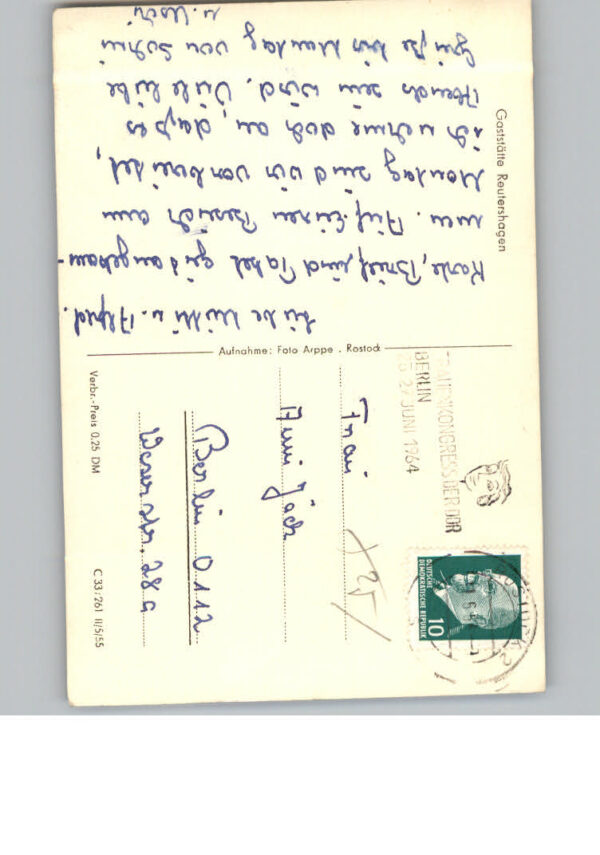 Gaststätte Reutershagen
Liebe Mutti u. Alfred.
Karte, Brief und Paket gut angekom-
men. Auf Euren Besuch am
Montag sind wir vorbereitet,
ich nehme doch an, daß es
Abends sein wird. Viele liebe
Grüße bis Montag von
u. Uschi
Aufnahme: Foto Arppe . Rostock
FRAUENKONGRESS DER DDR
BERLIN
25-27 JUNI 1964
ROSTOCK 2
DEUTSCHE
DEMOKRATISCHE REPUBLIK
10
25
Frau
Anni Jäck
Berlin O 112
Weserstr. 28a
Verbr.-Preis 0.25 DM
C 33/261 II/5/55